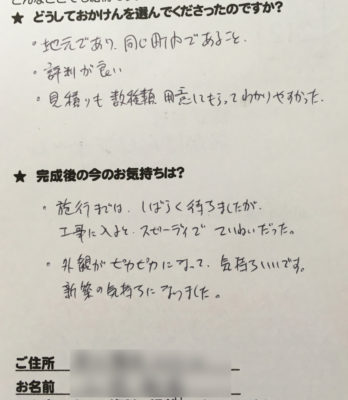 ★ どうしておかけんを選んでくださったのですか?
・地元であり、同じ町内であること。
・評判が良い
・見積りも 数種類 用意してもらってわかりやすかった。
★ 完成後の今のお気持ちは?
・施行までは、しばらく待ちましたが、
工事に入ると、スピーディで ていねいだった。
・外観がピカピカになって、気持ちいいです。
新築の気持ちになりました。
ご住所
お名前